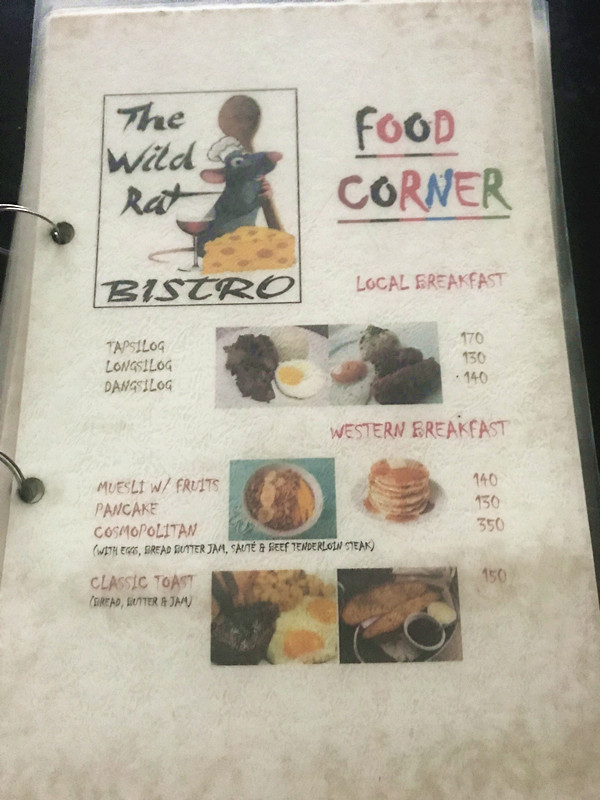 The
Wild
Rat
BISTRO
FOOD
CORNER
LOCAL BREAKFAST
TAPSILOG 170
LONGSILOG 130
DANGSILOG 140
WESTERN BREAKFAST
MUESLI W/ FRUITS 140
PANCAKE 130
COSMOPOLITAN 350
(WITH EGGS, BREAD BUTTER JAM, SAUTÉ & BEEF TENDERLOIN STEAK)
CLASSIC TOAST 150
(BREAD, BUTTER & JAM)